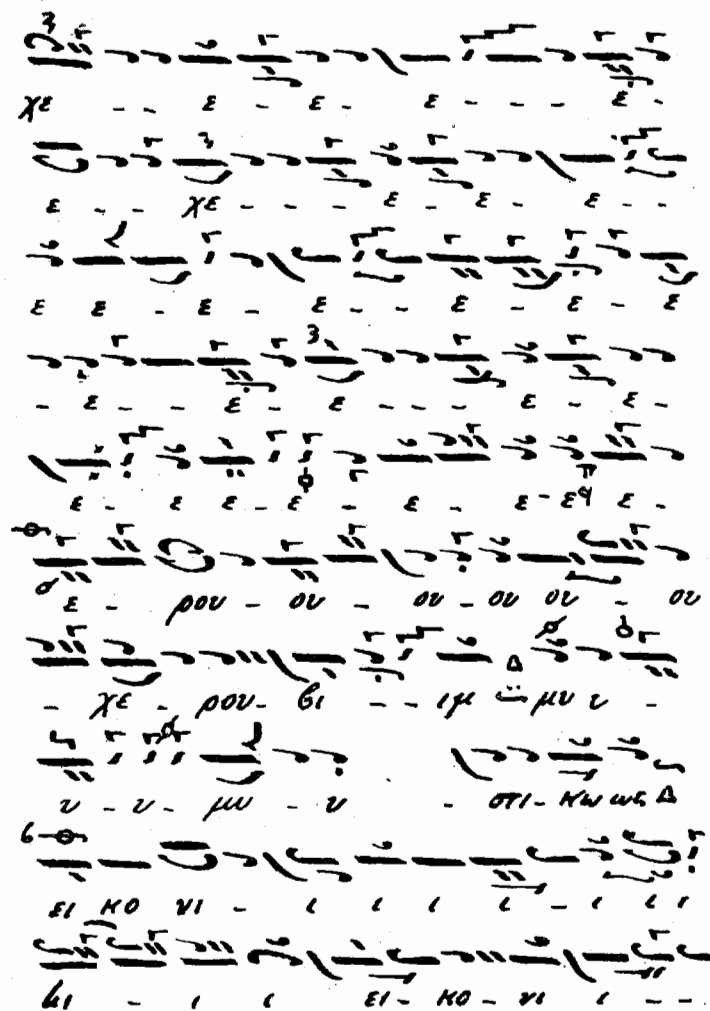 χε - - ε - ε - ε - - - - ε -
ε - - χε - - - - ε - ε - ε - -
ε ε - ε - ε - - ε - ε - ε
- ε - - ε - ε - - - ε - ε -
ε - ε ε - ε - ε - ε - ε ε -
ε - ρου - ου - ου - ου ου - ου
- χε - ρου - βι - - ιμ μυ υ -
υ - υ - μυ - υ - στι - κω ως Δ
ει κο νι - ι ι ι ι - ι ι ι
- ι ι ει - κο - νι ι - -